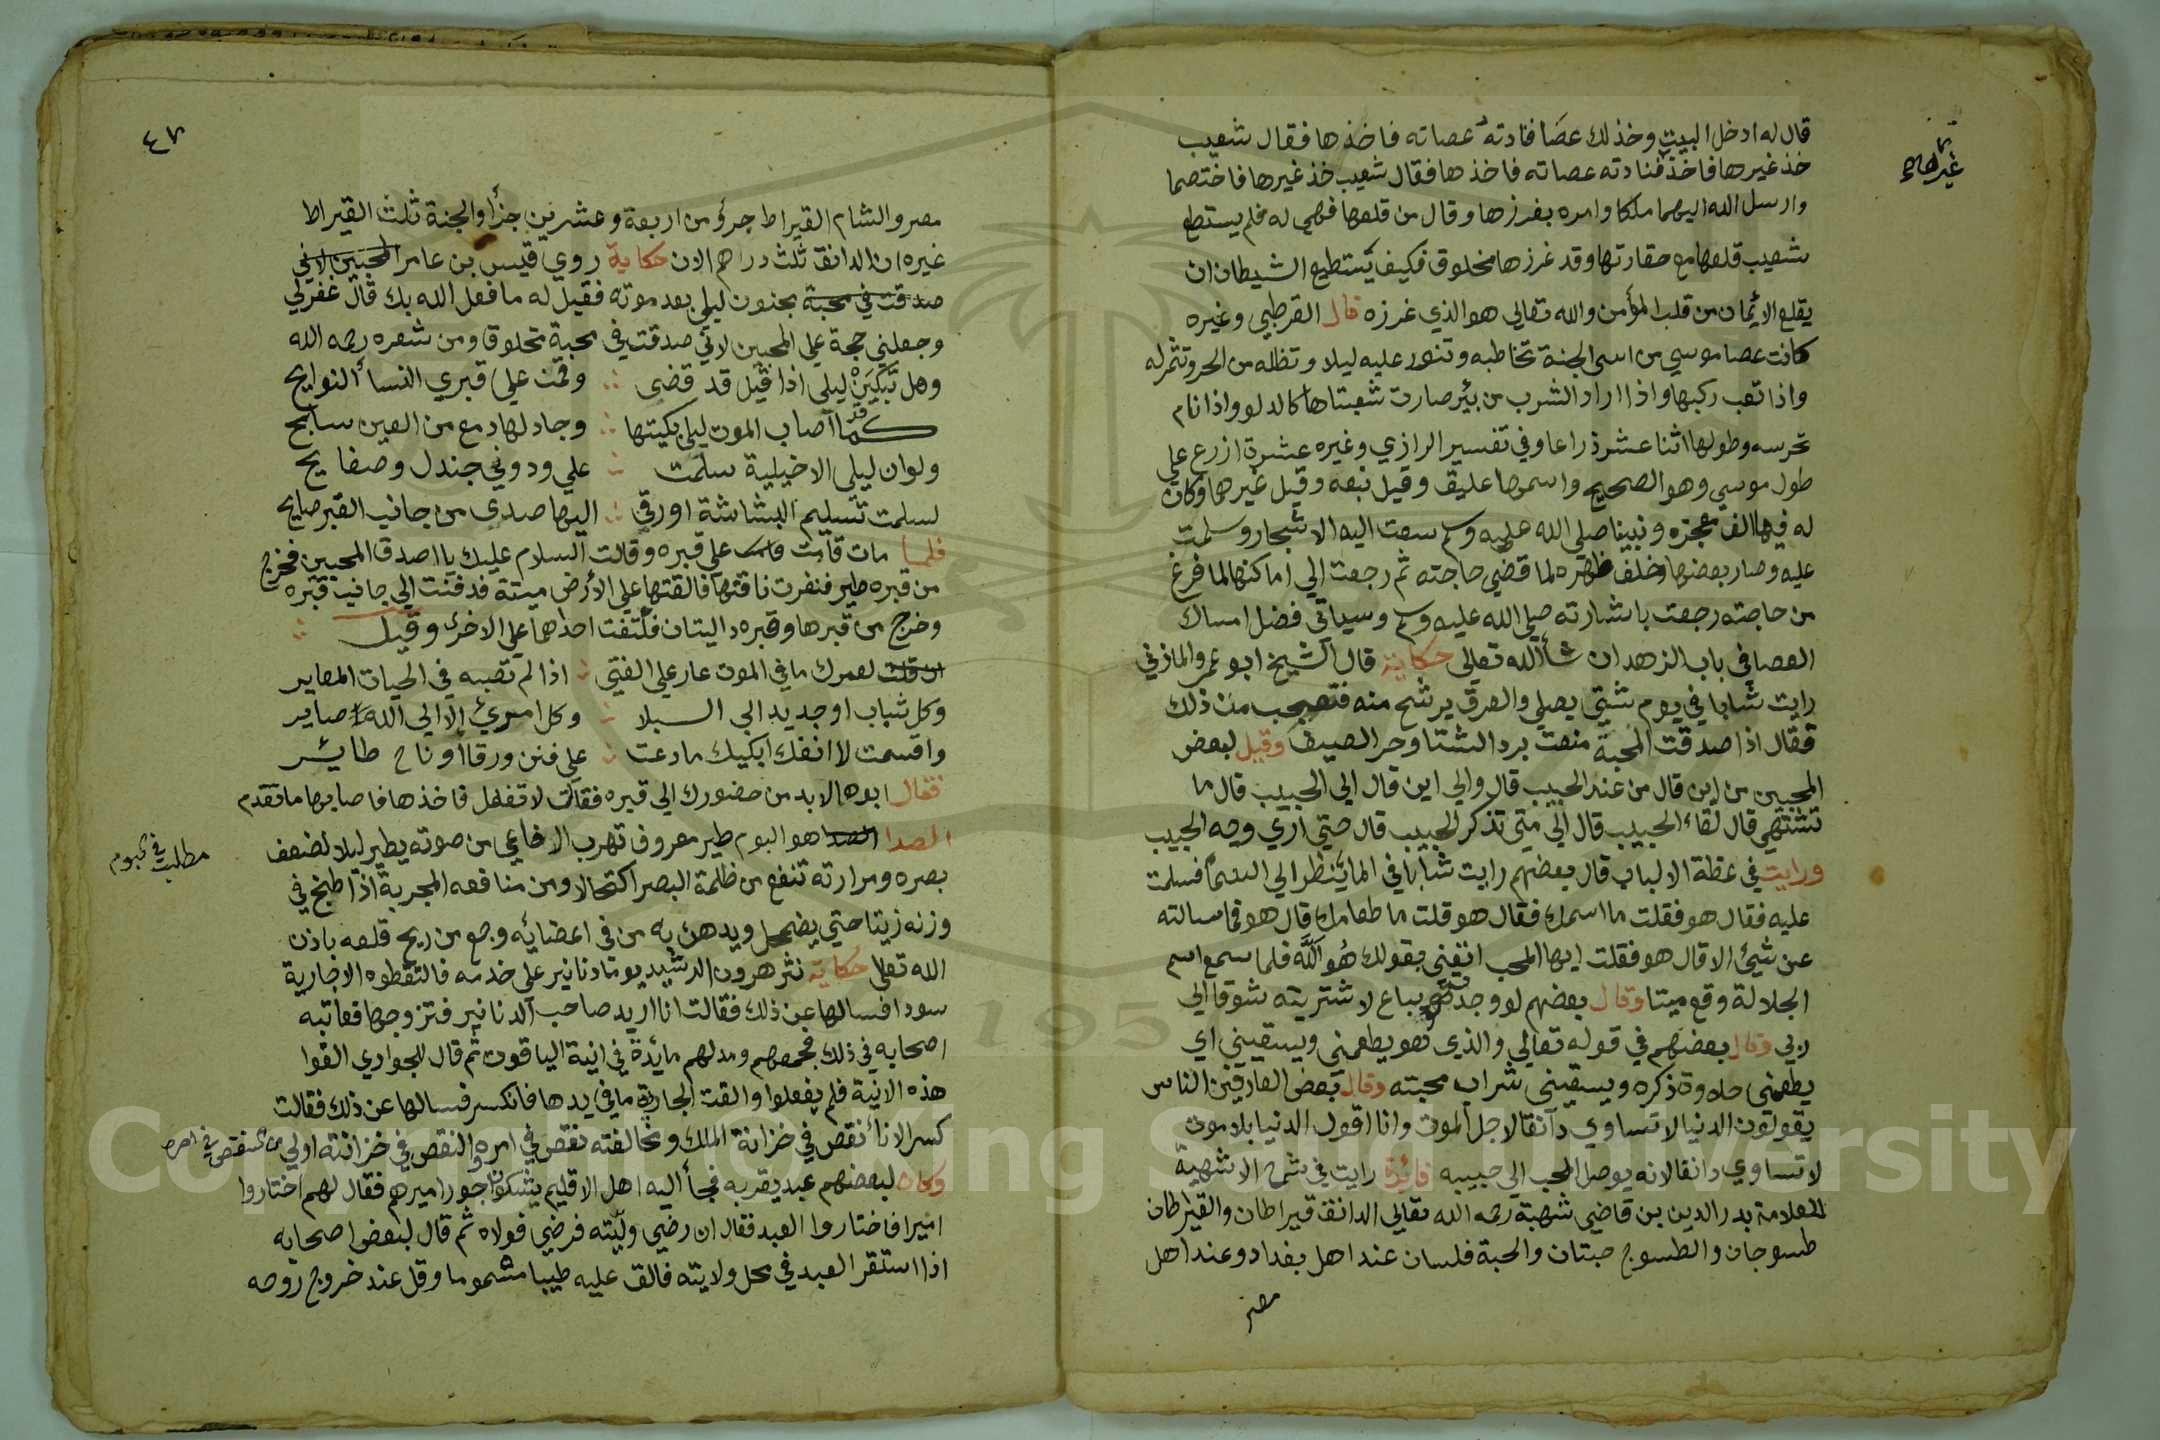 قال له ادخل البيت وخذ لك عصا فنادته عصاته فاخذها فقال شعيب
غيرها
خذ غيرها فاخذ فنادته عصاته فاخذها فقال شعيب خذ غيرها فاختصما
وارسل الله اليهما ملكا وامره بغرزها وقال من قلعها فهي له فلم يستطع
شعيب قلعها مع حقارتها وقد غرزها مخلوق فكيف يستطيع الشيطان ان
يقلع الايمان من قلب المؤمن والله تعالى هو الذي غرزه قال القرطبي وغيره
كانت عصا موسي من اسى الجنة تخاطبه وتنور عليه ليلا وتظله من الحر وتثمر له
واذا تعب ركبها واذا اراد الشرب من بئر صارت شعبتاها كالدلو واذا نام
تحرسه وطولها اثنا عشر ذراعا وفي تفسير الرازي وغيره عشرة ازرع علي
طول موسي وهو الصحيح واسمها عليق وقيل نبعه وقيل غيرها وكان
له فيها الف معجزه ونبينا صلي الله عليه وسلم سعت اليه الاشجار وسلمت
عليه وصار بعضها خلف ظهره لما قضي حاجته ثم رجعت الي اماكنها لما فرغ
من حاجته رجعت باشارته صلي الله عليه وسلم وسياتي فضل امساك
العصا في باب الزهد ان شأ الله تعالي حكاية قال الشيخ ابو عمر والمازني
رايت شابا في يوم شتي يصلي والعرق يرشح منه فتعجب من ذلك
فقال اذا صدقت المحبة منعت برد الشتا وحر الصيف وقيل لبعض
المحبين من اين قال من عند الحبيب قال والي اين قال الي الحبيب قال ما
تشتهي قال لقاء الحبيب قال الي متي تذكر الحبيب قال حتي اري وجه الحبيب
ورايت في عقظة الالباب قال بعضهم رايت شابا في الما ينظر الي السما فسلمت
عليه فقال هو فقلت ما اسمك فقال هو قلت ما طعامك قال هو فما سالته
عن شيئ الا قال هو فقلت ايها المحب اتعني بقولك هو الله فلما سمع اسم
الجلالة وقع ميتا وقال بعضهم لو وجدت يباع لاشتريته شوقا الي
ربي وقال بعضهم في قوله تعالي والذي هو يطعمني ويسقيني اي
يطعمني حلاوة ذكره ويسقيني شراب محبته وقال بعض العارفين الناس
يقولون الدنيا لا تساوي دانقا لاجل الموت وانا اقول الدنيا بلا موت
لا تساوي دانقا لانه يوصل المحب الي حبيبه فائدة رايت في شرح الاشهية
للعلامة بدر الدين بن قاضي شهبة رحمه الله تعالي الدانق قيراطان والقيراطان
طسوجان والطسوج حبتان والحبة فلسان عند اهل بغداد وعند اهل
مصر
٤٧
مصر والشام القيراط جزؤ من اربعة وعشرين جزأ والجنة ثلث القيراط
غيره ان الدانق ثلث دراهم الان حكاية روي قيس بن عامر المحبين لاني
صدقت في محبة بجنون ليلي بعد موته فقيل له ما فعل الله بك قال غفر لي
وجعلني حجة علي المحبين لاني صدقت في محبة مخلوق ومن شعره رحمه الله
وهل تبكين ليلي اذا قيل قد قضى ∴ وقمت علي قبري النسأ النوايح
كما اصاب الموت ليلي بكيتها ∴ وجاد لها دمع من العين سابح
ولو ان ليلى الاخيلية سلمت ∴ علي ودوني جندل وصفايح
لسلمت تسليم البشاشة او رقي ∴ اليها صدى من جانب القبر صايح
فلما مات قامت علي قبره وقالت السلام عليك يا اصدق المحبين فخرج
من قبره طير فنفرت ناقتها فالقتها علي الارض ميتة فدفنت الي جانب قبره
وخرج من قبرها وقبره داليتان فلتفت احداهما علي الاخرى وقيل ∴
لعمرك ما في الموت عار علي الفتي ∴ اذا لم تصبه في الحيات المعاير
وكل شباب او جديد الي السبلا ∴ وكل امرئ الا الي الله صاير
واقسمت لا انفك ابكيك ما دعت ∴ علي فنن ورقا او ناح طائر
فقال ابوها لا بد من حضورك الي قبره فقالت لا تفعل فاخذها فاصابها ما تقدم
مطلب في البوم
الصدا هو البوم طير معروف تهرب الافاعي من صوته يطير ليلا لضعف
بصره ومرارته تنفع من ظلمة البصر اكتحالا ومن منافعه المجربة اذا طبخ في
وزنه زيتا حتي يضمحل ويدهن به من في اعضائه وجع من ريح قلعه باذن
الله تعلي حكاية نثر هرون الرشيد يوما دنانير علي خدمه فالتقطوه الا جارية
سودا فسالها عن ذلك فقالت انا اريد صاحب الدنانير فتزوجها فعاتبه
اصحابه في ذلك فجمعهم ومد لهم مائدة في انية الياقوت ثم قال للجواري القوا
هذه الانية فلم يفعلوا والقت الجارية ما في يدها فانكسر فسالها عن ذلك فقالت
كسر الانا نقص في خزانة الملك ومخالفته نقص في امره والنقص في خزانته اولي من النقص في امره
وكان لبعضهم عبد يقربه فجأ اليه اهل الاقليم يشكون جور اميرهم فقال لهم اختاروا
اميرا فاختاروا العبد فقال ان رضي وليته فرضي فولاه ثم قال لبعض اصحابه
اذا استقر العبد في محل ولايته فالق عليه طيبا مشموما وقل عند خروج روحه